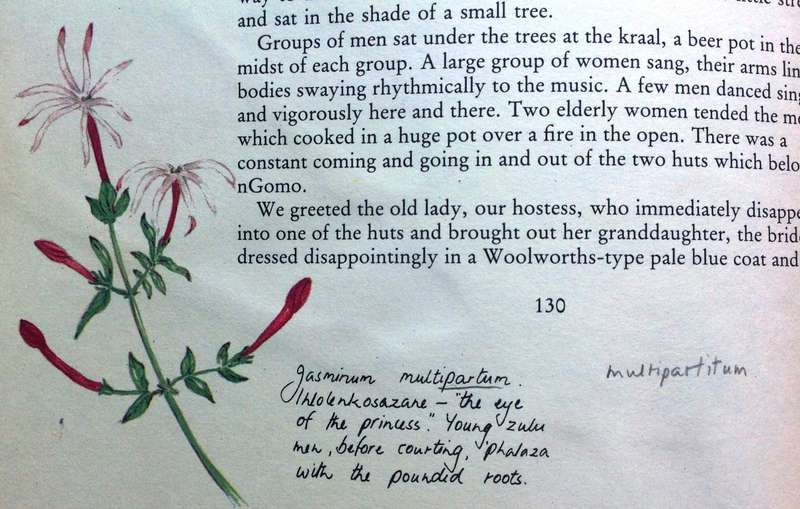 and sat in the shade of a small tree.
Groups of men sat under the trees at the kraal, a beer pot in the
midst of each group. A large group of women sang, their arms lin
bodies swaying rhythmically to the music. A few men danced sing
and vigorously here and there. Two elderly women tended the me
which cooked in a huge pot over a fire in the open. There was a
constant coming and going in and out of the two huts which belo
nGomo.
We greeted the old lady, our hostess, who immediately disappe
into one of the huts and brought out her granddaughter, the brid
dressed disappointingly in a Woolworths-type pale blue coat and
130
Jasminum multipartum.
Ihlolenkosazane – "the eye
of the princess." Young zulu
men, before courting, 'phalaza
with the pounded roots.
multipartitum